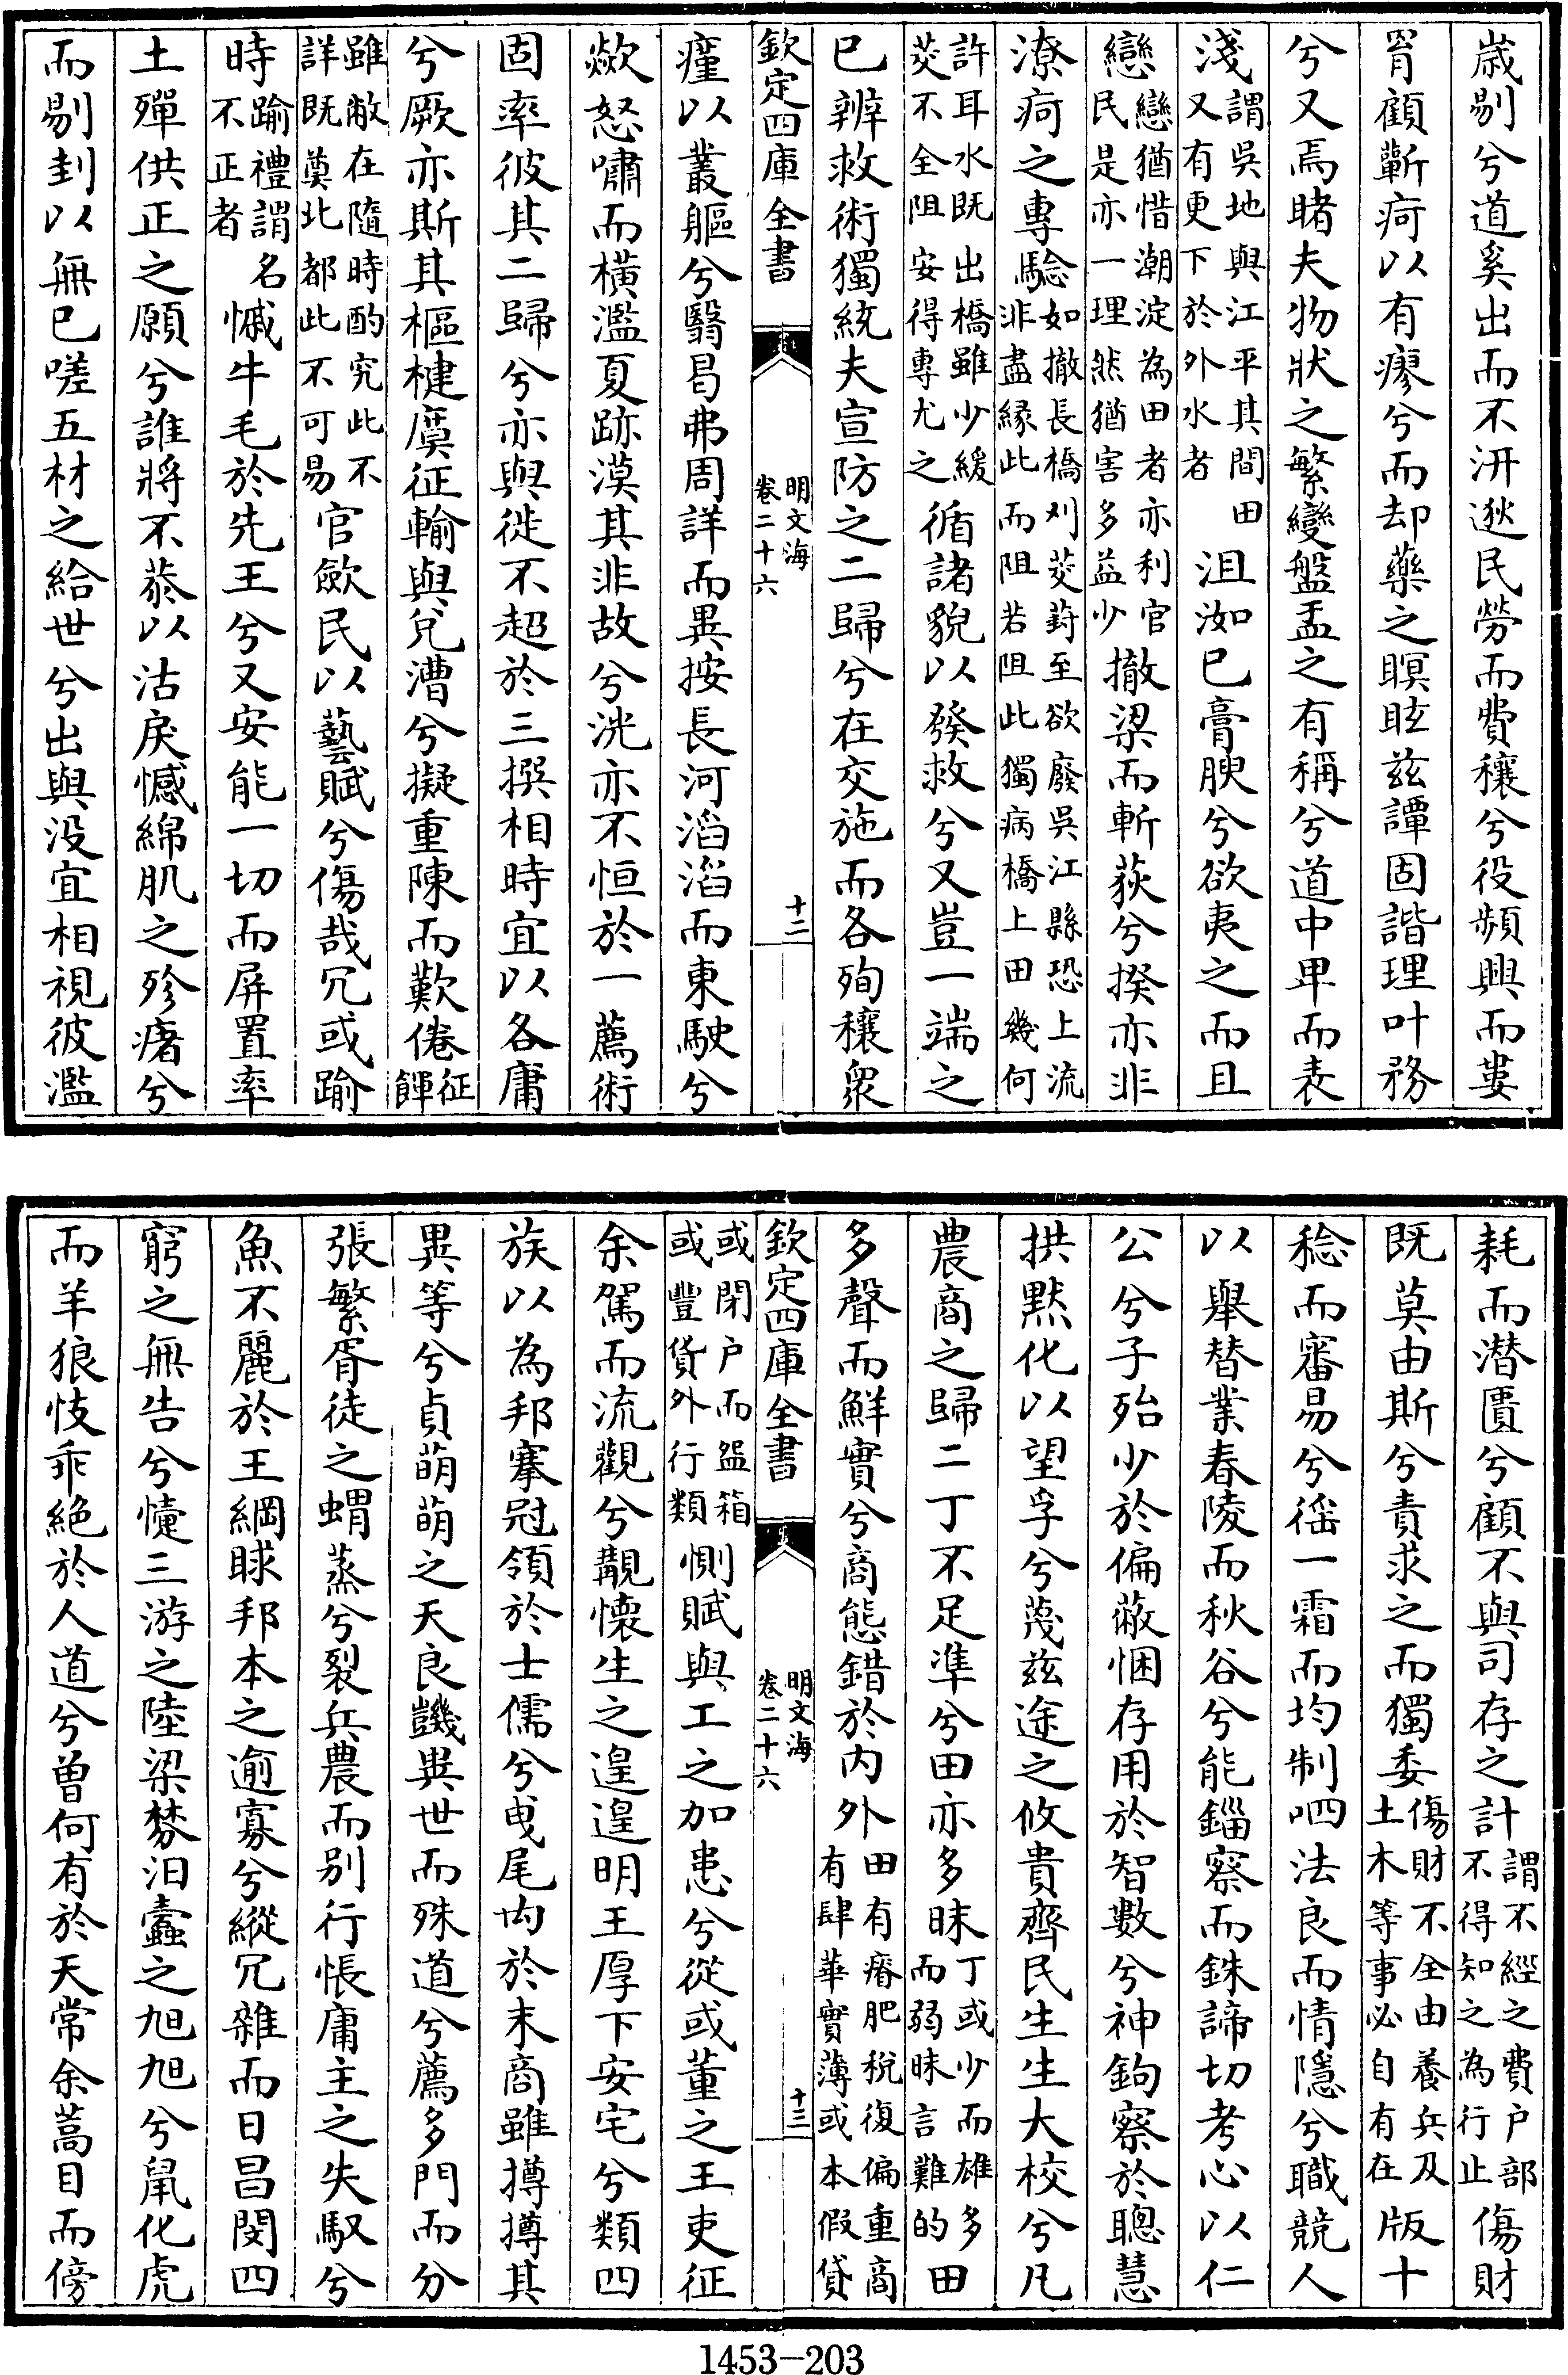 歳剔兮道奚出而不汧逖民勞而費穰兮役頻興而婁
窅顧蘄疴以有瘳兮而却藥之瞑眩兹譚固諧理叶務
兮又焉睹夫物狀之繁變盤盂之有稱兮道中卑而表
淺謂吳地與江平其間田又有更下於外水者沮洳已膏腴兮欲夷之而且
戀戀猶惜潮淀為田者亦利官民是亦一理然猶害多益少撤梁而斬荻兮揆亦非
潦疴之專驗如撤長橋刈茭葑至欲廢吳江縣恐上流非盡縁此而阻若阻此獨病橋上田幾何
許耳水既出橋雖少緩茭不全阻安得專尤之循諸貌以發救兮又豈一端之
已辨救術獨統夫宣防之二歸兮在交施而各殉穰衆
欽定四庫全書
明文海
卷二十六
十二
瘽以叢軀兮翳曷弗周詳而異按長河滔滔而東駛兮
歘怒嘯而橫濫夏跡漠其非故兮洸亦不恒於一薦術
固率彼其二歸兮亦與徙不超於三撰相時宜以各庸
兮厥亦斯其樞楗廙征輸與兊漕兮擬重陳而歎倦征餫
雖敝在隨時酌究此不詳既奠北都此不可易官歛民以藝賦兮傷哉冗或踰
時踰禮謂名不正者慽牛毛於先王兮又安能一切而屏置率
土殫供正之願兮誰將不菾以沽戾憾綿肌之殄瘏兮
而剔刲以無已嗟五材之給世兮出與没宜相視彼濫
耗而潜匱兮顧不與司存之計謂不經之費户部不得知之為行止傷財
既莫由斯兮責求之而獨委傷財不全由養兵及土木等事必自有在版十
稔而審易兮徭一霜而均制呬法良而情隱兮職競人
以舉替業春陵而秋谷兮能錙察而銖諦切考心以仁
公兮子殆少於偏蔽悃存用於智數兮神鉤察於聰慧
拱黙化以望孚兮蔑兹途之攸貴齊民生生大校兮凡
農商之歸二丁不足準兮田亦多昧丁或少而雄多而弱昧言難的田
多聲而鮮實兮商態錯於内外田有瘠肥稅復偏重商有肆華實薄或本假貸
欽定四庫全書
明文海
卷二十六
十三
或閉户而盈箱或豐貨外行類惻賦與工之加患兮從或董之王吏征
余駕而流觀兮覯懷生之遑遑明王厚下安宅兮類四
族以為邦搴冠領於士儒兮曵尾内於末商雖撙撙其
異等兮貞萌萌之天良豑異世而殊道兮薦多門而分
張繁胥徒之蝟蒸兮裂兵農而别行悵庸主之失馭兮
魚不麗於王綱眽邦本之逾寡兮縱冗雜而日昌閔四
窮之無告兮懥三游之陸梁棼汨蠧之旭旭兮鼠化虎
而羊狼忮乖絶於人道兮曽何有於天常余蒿目而傍
1453-203